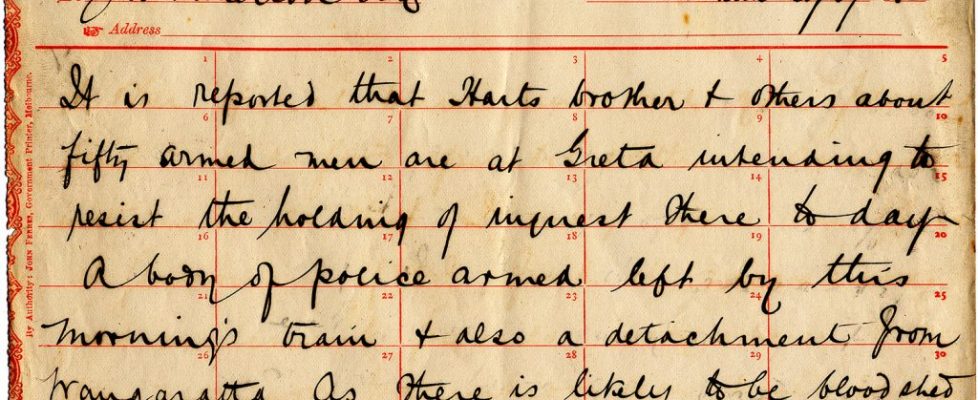 Address
It is reported that Harts brother & others about
fifty armed men are at Greta intending to
resist the holding of inquest there to day
A body of police armed left by this
morning's train & also a detachment from
Wangaratta As there is likely to be bloodshed
1 2 3 4 5
6 7 8 9 10
11 12 13 14 15
16 17 18 19 20
21 22 23 24 25
26 27 28 29 30
By Authority: JOHN FERRES, Government Printer, Melbourne.